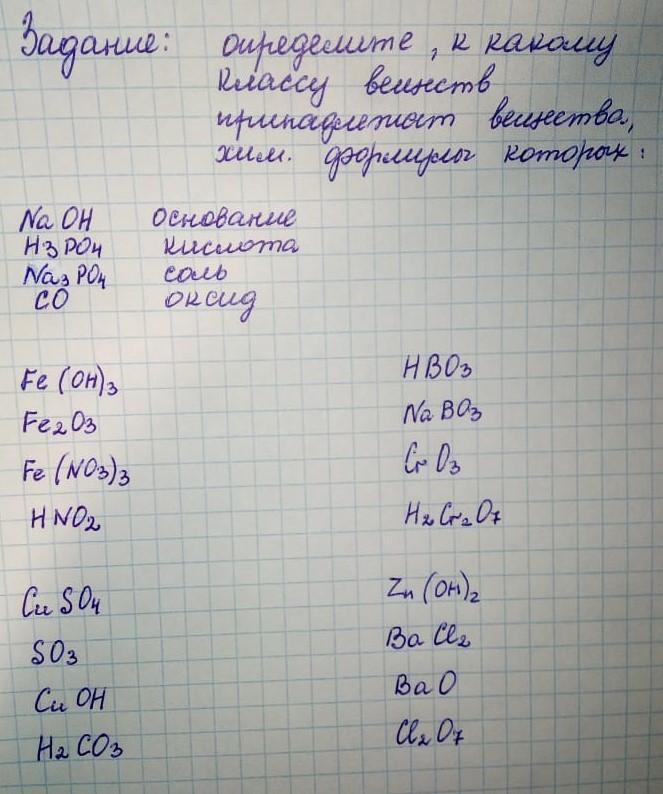 Задание: определите, к какому
классу веществ
принадлежат вещества,
хим. формулы которых:
NaOH основание
H3PO4 кислота
Na3PO4 соль
CO оксид
Fe(OH)3
Fe2O3
Fe(NO3)3
HNO2
HBO3
NaBO3
CrO3
H2Cr2O7
CuSO4
SO3
CuOH
H2CO3
Zn(OH)2
BaCl2
BaO
Cl2O7